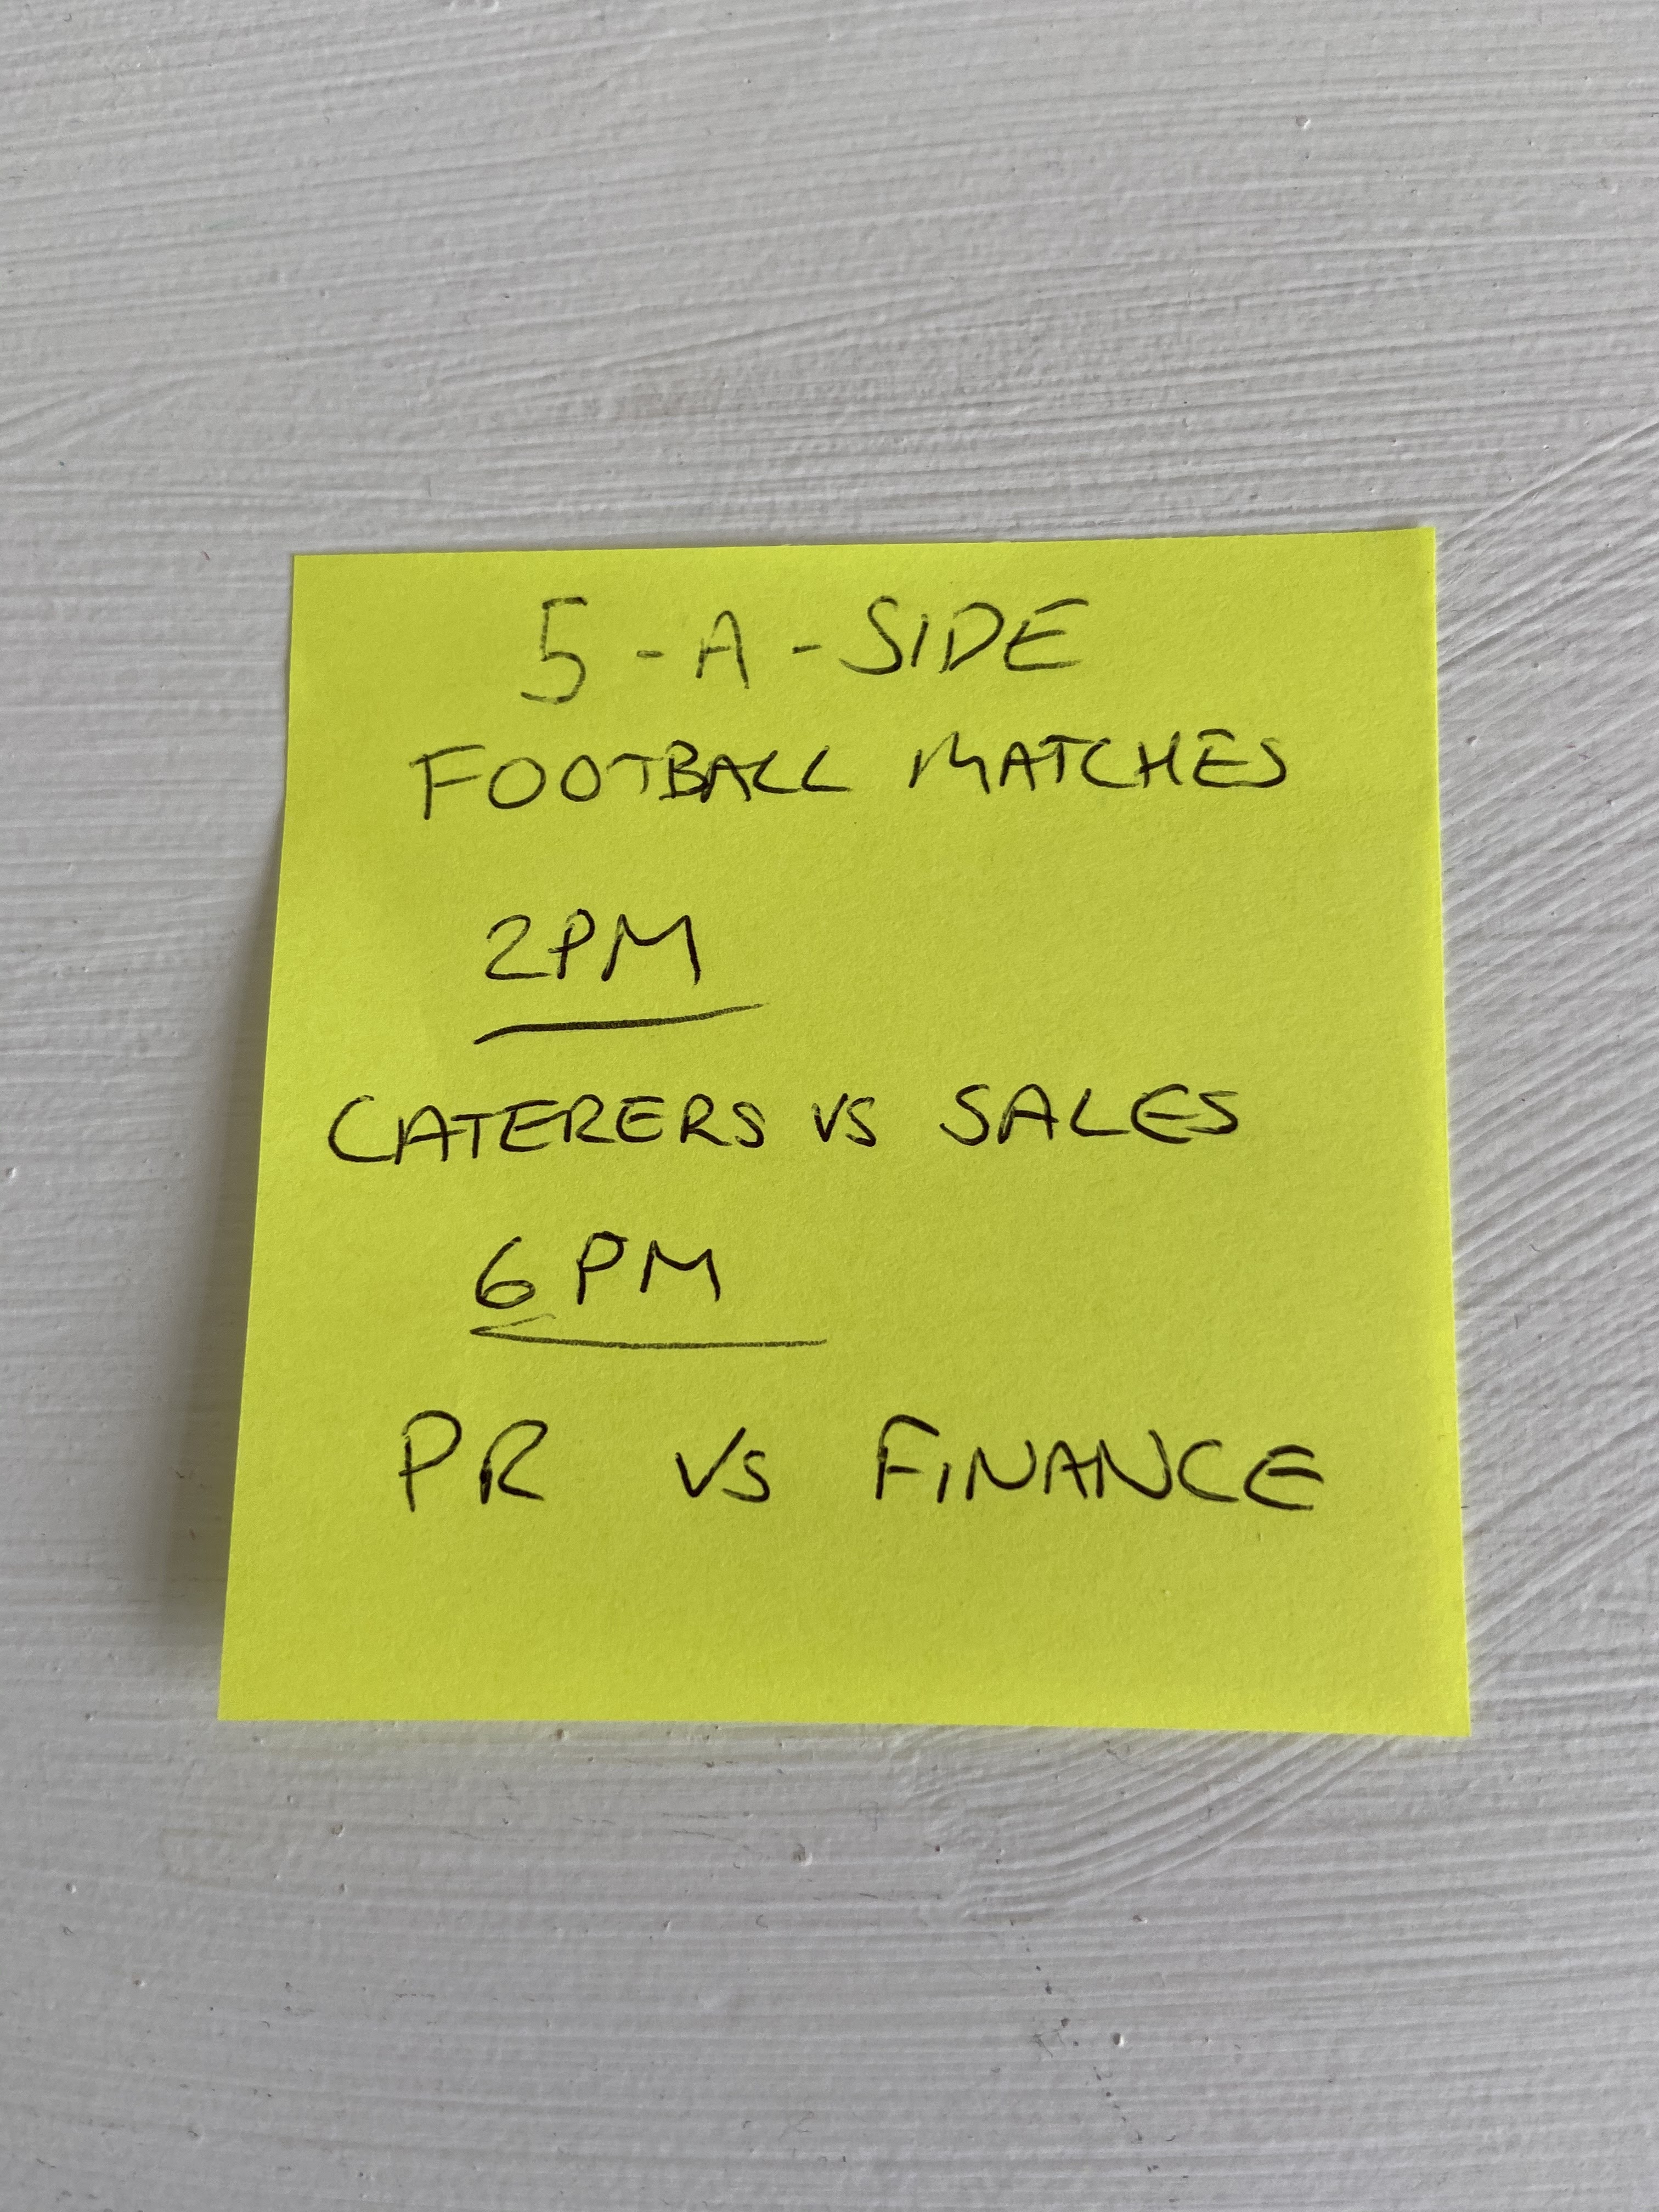 5-A-SIDE
FOOTBALL MATCHES
2PM
CATERERS VS SALES
6PM
PR VS FINANCE